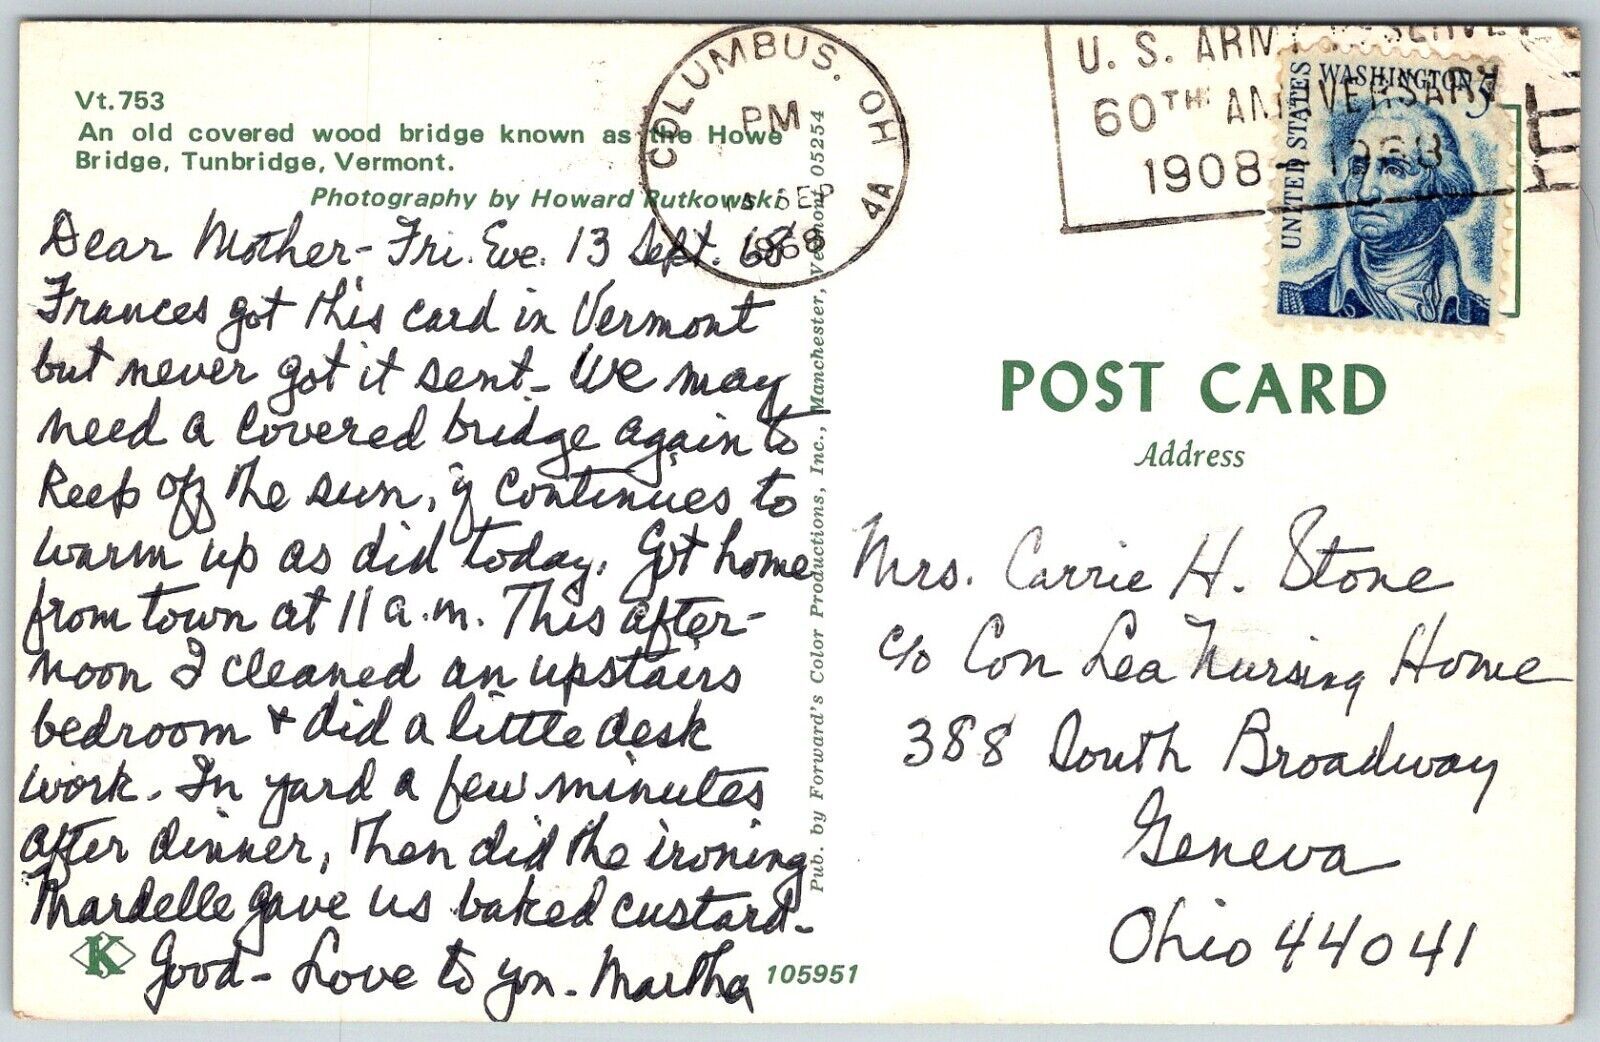 Vt.753
An old covered wood bridge known as the Howe
Bridge, Tunbridge, Vermont.
Photography by Howard Rutkowski
Dear Mother - Fri. Eve. 13 Sept. 68
Frances got this card in Vermont
but never got it sent - We may
need a covered bridge again to
keep off the sun, if continues to
warm up as did today. Got home
from town at 11 a.m. This after-
noon I cleaned an upstairs
bedroom & did a little desk
work. In yard a few minutes
after dinner, then did the ironing
Mardelle gave us baked custard -
Good - Love to you - Martha
K
105951
Pub. by Forward's Color Productions, Inc., Manchester, Vermont 05254
COLUMBUS, OH
PM
SEP
1968
4A
U. S. ARMY RESERVE
60TH ANNIVERSARY
1908 1968
UNITED STATES
WASHINGTON 5¢
POST CARD
Address
Mrs. Carrie H. Stone
c/o Con Lea Nursing Home
388 South Broadway
Geneva
Ohio 44041